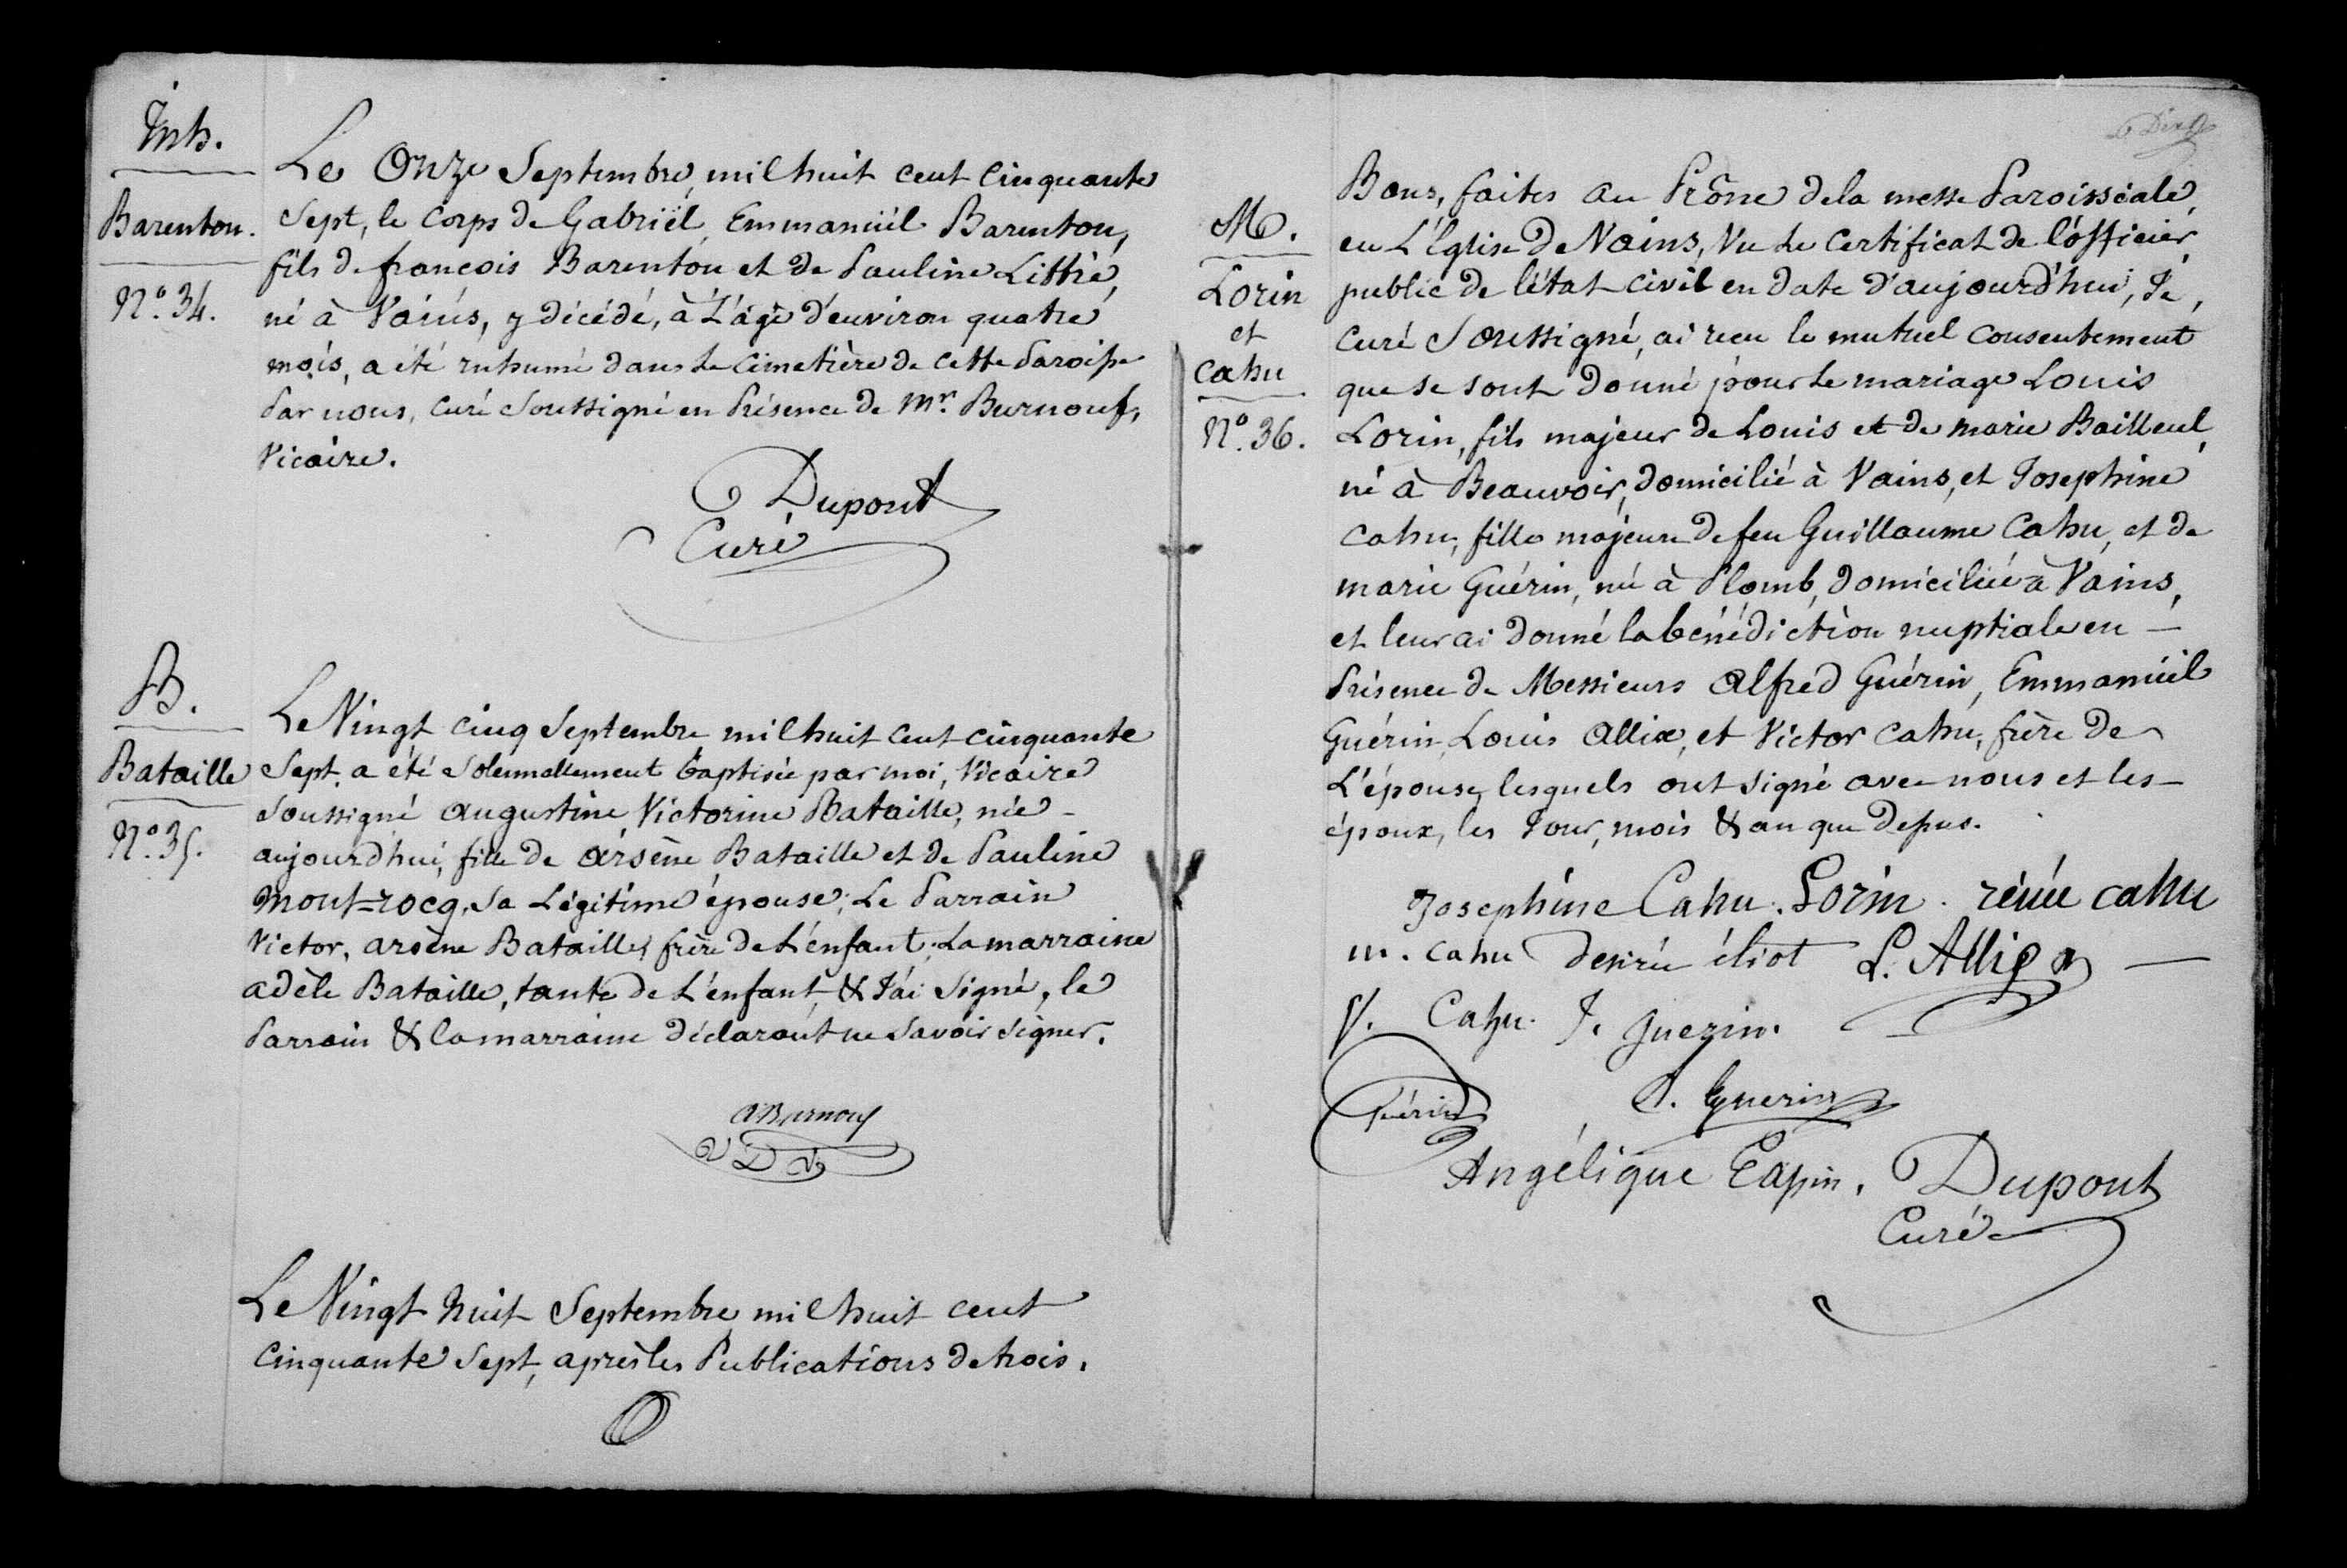 Inh.
Barenton.
N.° 34.
Le Onze Septembre, mil huit cent cinquante
Sept, le Corps de Gabriël, Emmanuël Barenton,
fils de françois Barenton et de Pauline Littré,
né à Vains, y décédé, à L'âge d'environ quatre
mois, a été inhumé dans le Cimetière de cette Paroisse
Par nous, Curé Soussigné en Présence de Mr. Burnouf,
Vicaire.
Dupont
Curé
B.
Bataille
N.° 35.
Le Vingt cinq Septembre mil huit cent cinquante
Sept, a été Solennellement baptisée par moi, Vicaire
Soussigné augustine Victorine Bataille, née -
aujourd'hui, fille de arsène Bataille et de Pauline
Mont=rocq, Sa Légitime épouse; Le Parrain
Victor, arsène Bataille, frère de L'enfant; La marraine
adèle Bataille, tante de L'enfant, & J'ai Signé, le
Parrain & la marraine Déclarant ne Savoir Signer.
A Burnouf
V D V
Le Vingt huit Septembre mil huit cent
Cinquante Sept, après les Publications de trois.
M.
Lorin
et
Cahu
N.° 36.
Bans, faites au Prône de la messe Paroissiale,
en L'Eglise de Vains, Vu le Certificat de l'officier,
public de l'état civil en Date D'aujourd'hui, Je,
Curé Soussigné, ai reçu le mutuel consentement
que se sont donné pour le mariage Louis
Lorin, fils majeur de Louis et de marie Bailleul,
né à Beauvoir, domicilié à Vains, et Josephine
Cahu, fille majeure de feu Guillaume Cahu, et de
marie Guérin, née à Plomb, domiciliée à Vains,
et leur ai donné la bénédiction nuptiale en —
Présence de Messieurs Alfred Guérin, Emmanuël
Guérin, Louis Allix, et Victor Cahu, frère de
L'épouse, lesquels ont signé avec nous et les —
époux, les Jour, mois & an que Dessus.
Josephine Cahu. Lorin. rénée cahu
m. Cahu Desirée éliot L. Allix
V. Cahu. J. guerin.
Guérin A. Guerin
Angélique Lapin. Dupont
Curé